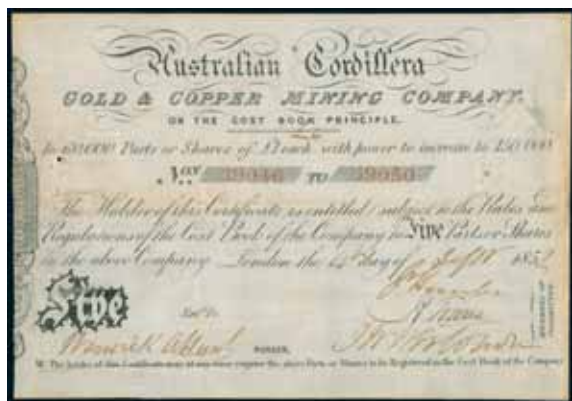 Australian Cordillera
GOLD & COPPER MINING COMPANY.
ON THE COST BOOK PRINCIPLE.
In Parts or Shares of £1 each with power to increase to
Nos. 39046 TO 39050
The Holder of this Certificate is entitled (subject to the Rules and
Regulations of the Cost Book of the Company to Five Parts or Shares
in the above Company London the day of 185
Five
Ent'd.
PURSER.
MEMBERS OF COMMITTEE
The holder of this Certificate may at any time require the above Parts or Shares to be Registered in the Cost Book of the Company